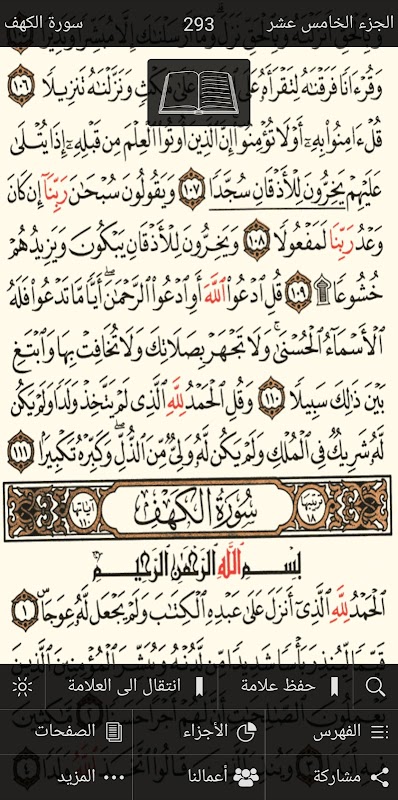 الجزء الخامس عشر 293 سورة الكهف
وَقُرْءَانًا فَرَقْنَٰهُ لِتَقْرَأَهُۥ عَلَى مُكْثٍ وَنَزَّلْنَٰهُ تَنزِيلًا ١٠٦
قُلْ ءَامِنُوا۟ بِهِۦٓ أَوْ لَا تُؤْمِنُوٓا۟ إِنَّ ٱلَّذِينَ أُوتُوا۟ ٱلْعِلْمَ مِن قَبْلِهِۦٓ إِذَا يُتْلَىٰ
عَلَيْهِمْ يَخِرُّونَ لِلْأَذْقَانِ سُجَّدًا ١٠٧ وَيَقُولُونَ سُبْحَٰنَ رَبِّنَآ إِن كَانَ
وَعْدُ رَبِّنَا لَمَفْعُولًا ١٠٨ وَيَخِرُّونَ لِلْأَذْقَانِ يَبْكُونَ وَيَزِيدُهُمْ
خُشُوعًا ۩ ١٠٩ قُلِ ٱدْعُوا۟ ٱللَّهَ أَوِ ٱدْعُوا۟ ٱلرَّحْمَٰنَ ۖ أَيًّا مَّا تَدْعُوا۟ فَلَهُ
ٱلْأَسْمَآءُ ٱلْحُسْنَىٰ ۚ وَلَا تَجْهَرْ بِصَلَاتِكَ وَلَا تُخَافِتْ بِهَا وَٱبْتَغِ
بَيْنَ ذَٰلِكَ سَبِيلًا ١١٠ وَقُلِ ٱلْحَمْدُ لِلَّهِ ٱلَّذِى لَمْ يَتَّخِذْ وَلَدًا وَلَمْ يَكُن
لَّهُۥ شَرِيكٌ فِى ٱلْمُلْكِ وَلَمْ يَكُن لَّهُۥ وَلِىٌّ مِّنَ ٱلذُّلِّ ۖ وَكَبِّرْهُ تَكْبِيرًۢا ١١١
ترتيبها ١٨ سُورَةُ الكَهْفِ آياتها ١١٠
بِسْمِ ٱللَّهِ ٱلرَّحْمَٰنِ ٱلرَّحِيمِ
ٱلْحَمْدُ لِلَّهِ ٱلَّذِىٓ أَنزَلَ عَلَىٰ عَبْدِهِ ٱلْكِتَٰبَ وَلَمْ يَجْعَل لَّهُۥ عِوَجَا ۜ ١
حفظ علامة انتقال الى العلامة
الفهرس الأجزاء الصفحات
مشاركة أعمالنا المزيد